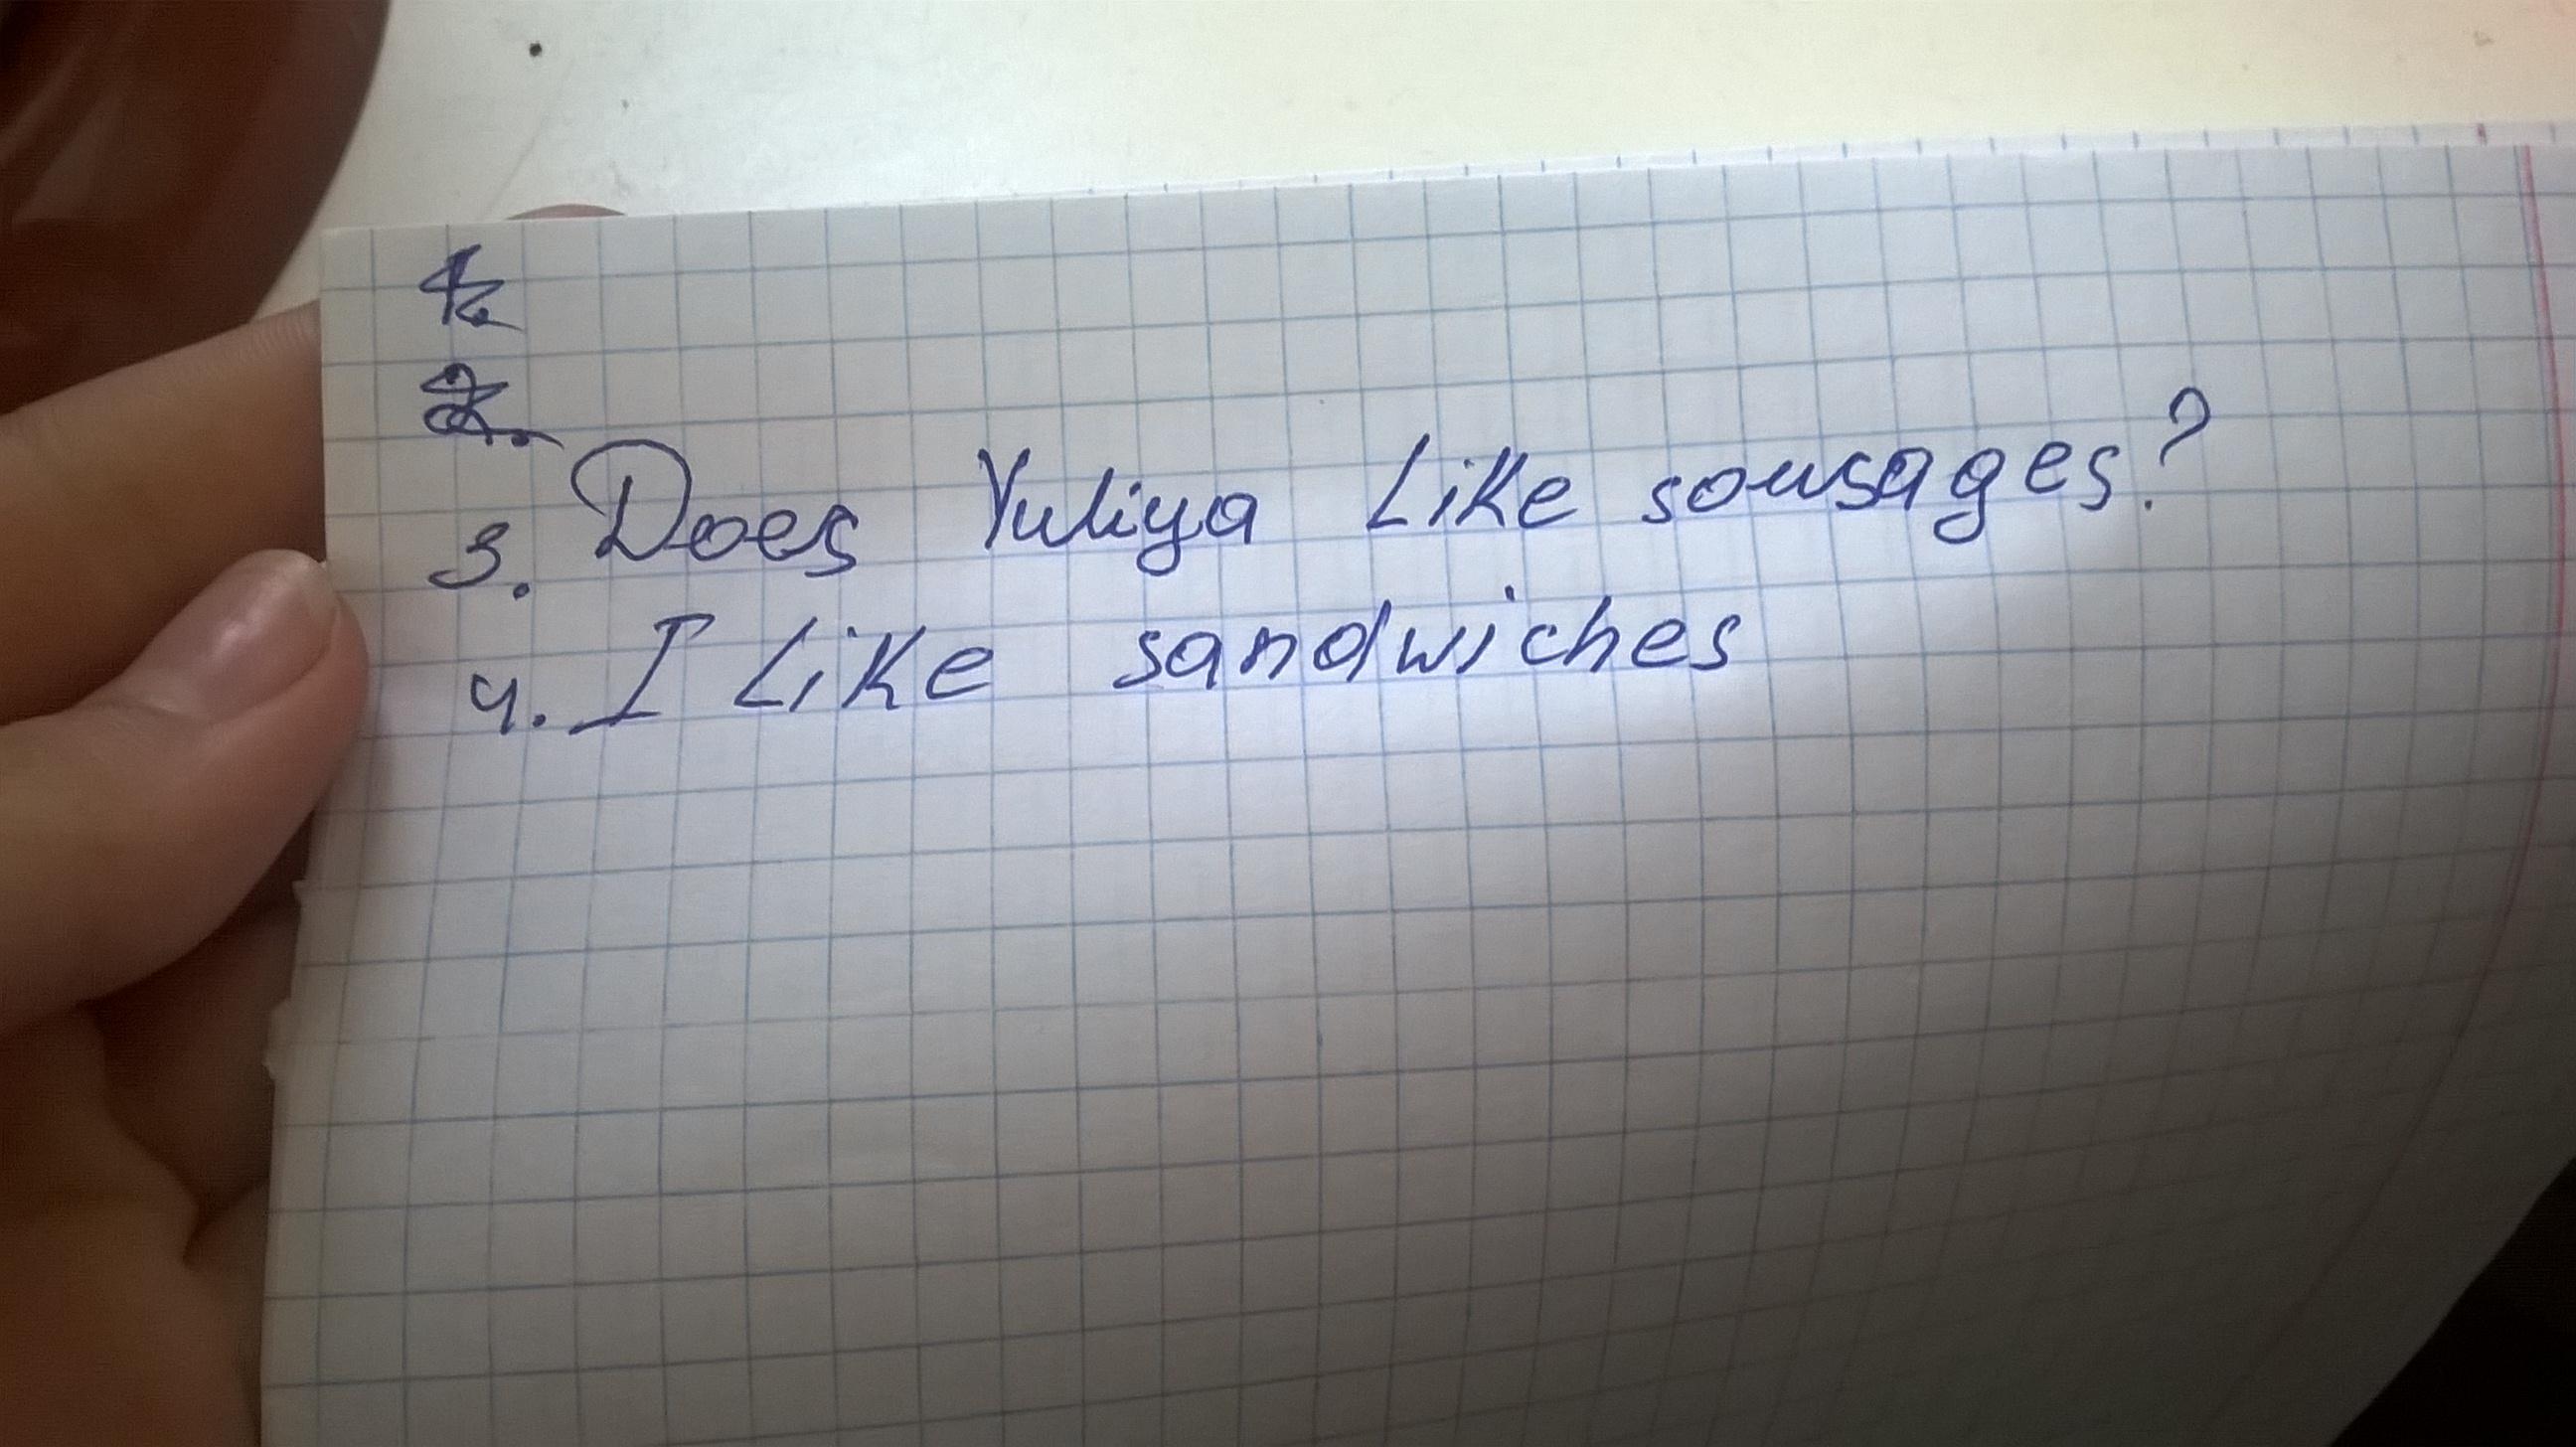 3. Does Yuliya like sousages?
4. I like sandwiches